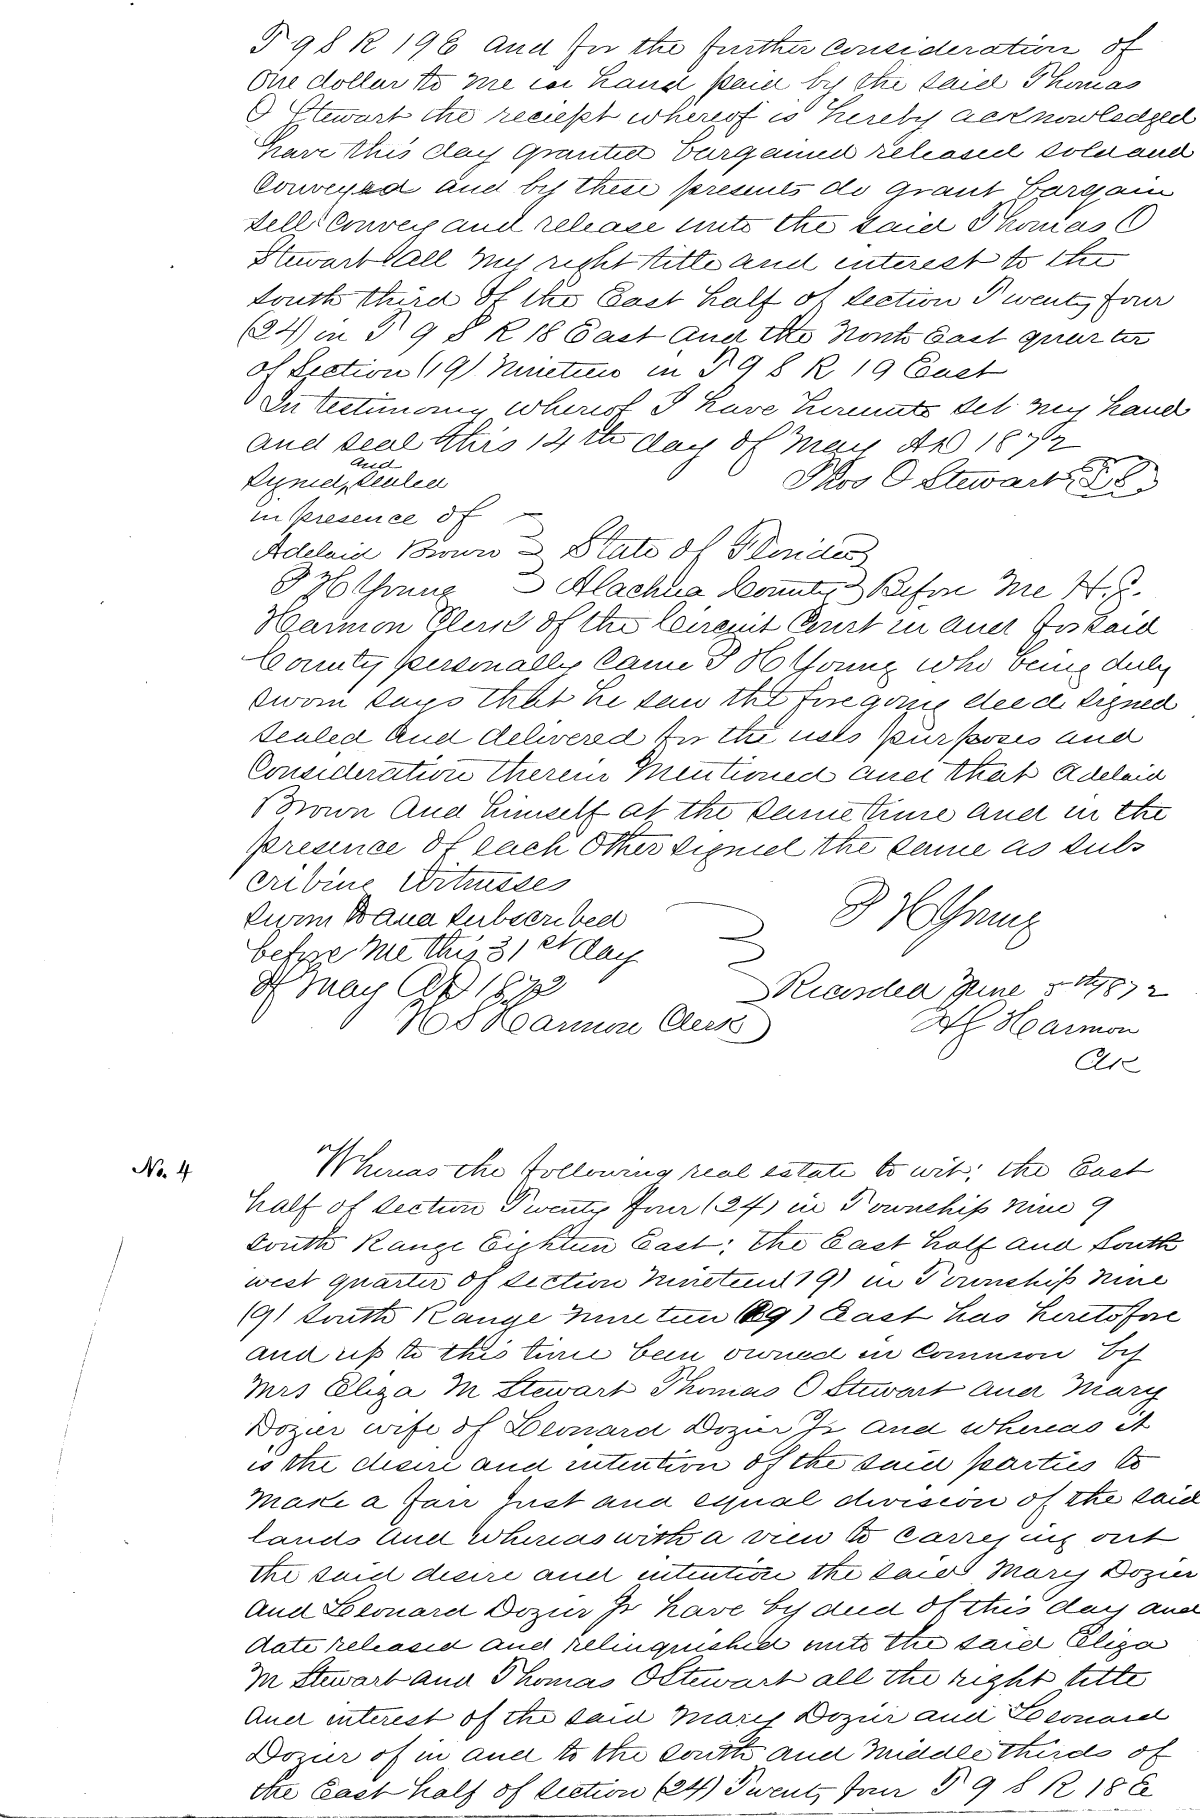 T 9 S R 19 E and for the further consideration of
One dollar to me in hand paid by the said Thomas
O Stewart the reciept whereof is hereby acknowledged
have this day granted bargained released sold and
Conveyed and by these presents do grant bargain
sell Convey and release unto the said Thomas O
Stewart all my right title and interest to the
South third of the East half of section Twenty four
(24) in T 9 S R 18 East and the North East quarter
of Section (19) Nineteen in T 9 S R 19 East
In testimony whereof I have hereunto set my hand
and seal this 14th day of May AD 1872
Signed and Sealed Thos O Stewart L S
in presence of
Adelaid Brown State of Florida
T H Young Alachua County Before me H. S.
Harmon Clerk of the Circuit Court in and for said
County personally Came T H Young who being duly
sworn says that he saw the foregoing deed signed
sealed and delivered for the uses purposes and
Consideration therein Mentioned and that Adelaid
Brown And himself at the same time and in the
presence of each other signed the same as subs
cribing Witnesses
Sworn to and subscribed T H Young
before me this 31st day
of May AD 1872 Recorded June 5th 1872
H S Harmon Clerk H S Harmon
Clk
No. 4 Whereas the following real estate to wit; the East
half of section Twenty four (24) in Township nine 9
South Range Eighteen East; the East half and South
west quarter of section Nineteen (19) in Township Nine
(9) South Range Nineteen (19) East has heretofore
and up to this time been owned in common by
Mrs Eliza M Stewart Thomas O Stewart and Mary
Dozier wife of Leonard Dozier Jr and whereas it
is the desire and intention of the said parties to
make a fair just and equal division of the said
lands and whereas with a view to carrying out
the said desire and intention the said Mary Dozier
and Leonard Dozier Jr have by deed of this day and
date released and relinquished unto the said Eliza
M Stewart and Thomas O Stewart all the right title
and interest of the said Mary Dozier and Leonard
Dozier of in and to the South and Middle thirds of
the East half of section (24) Twenty four T 9 S R 18 E